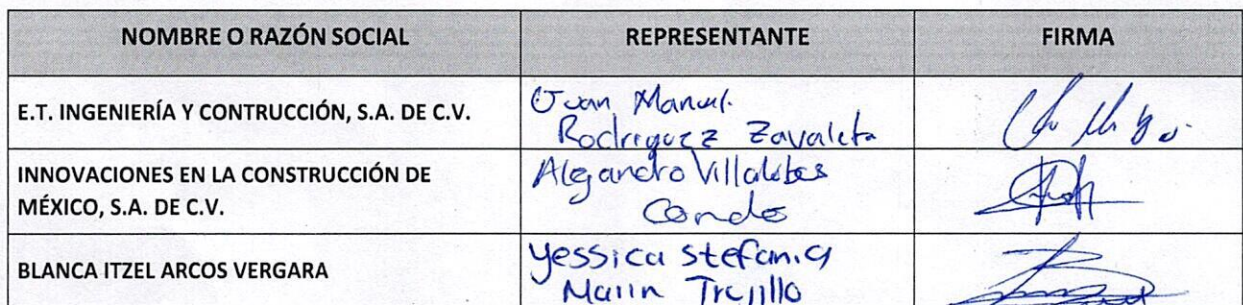 NOMBRE O RAZÓN SOCIAL REPRESENTANTE FIRMA
E.T. INGENIERÍA Y CONTRUCCIÓN, S.A. DE C.V.
Juan Manuel
Rodriguez Zavaleta
INNOVACIONES EN LA CONSTRUCCIÓN DE
MÉXICO, S.A. DE C.V.
Alejandro Villalobos
Conde
BLANCA ITZEL ARCOS VERGARA
Yessica Stefania
Marin Trujillo